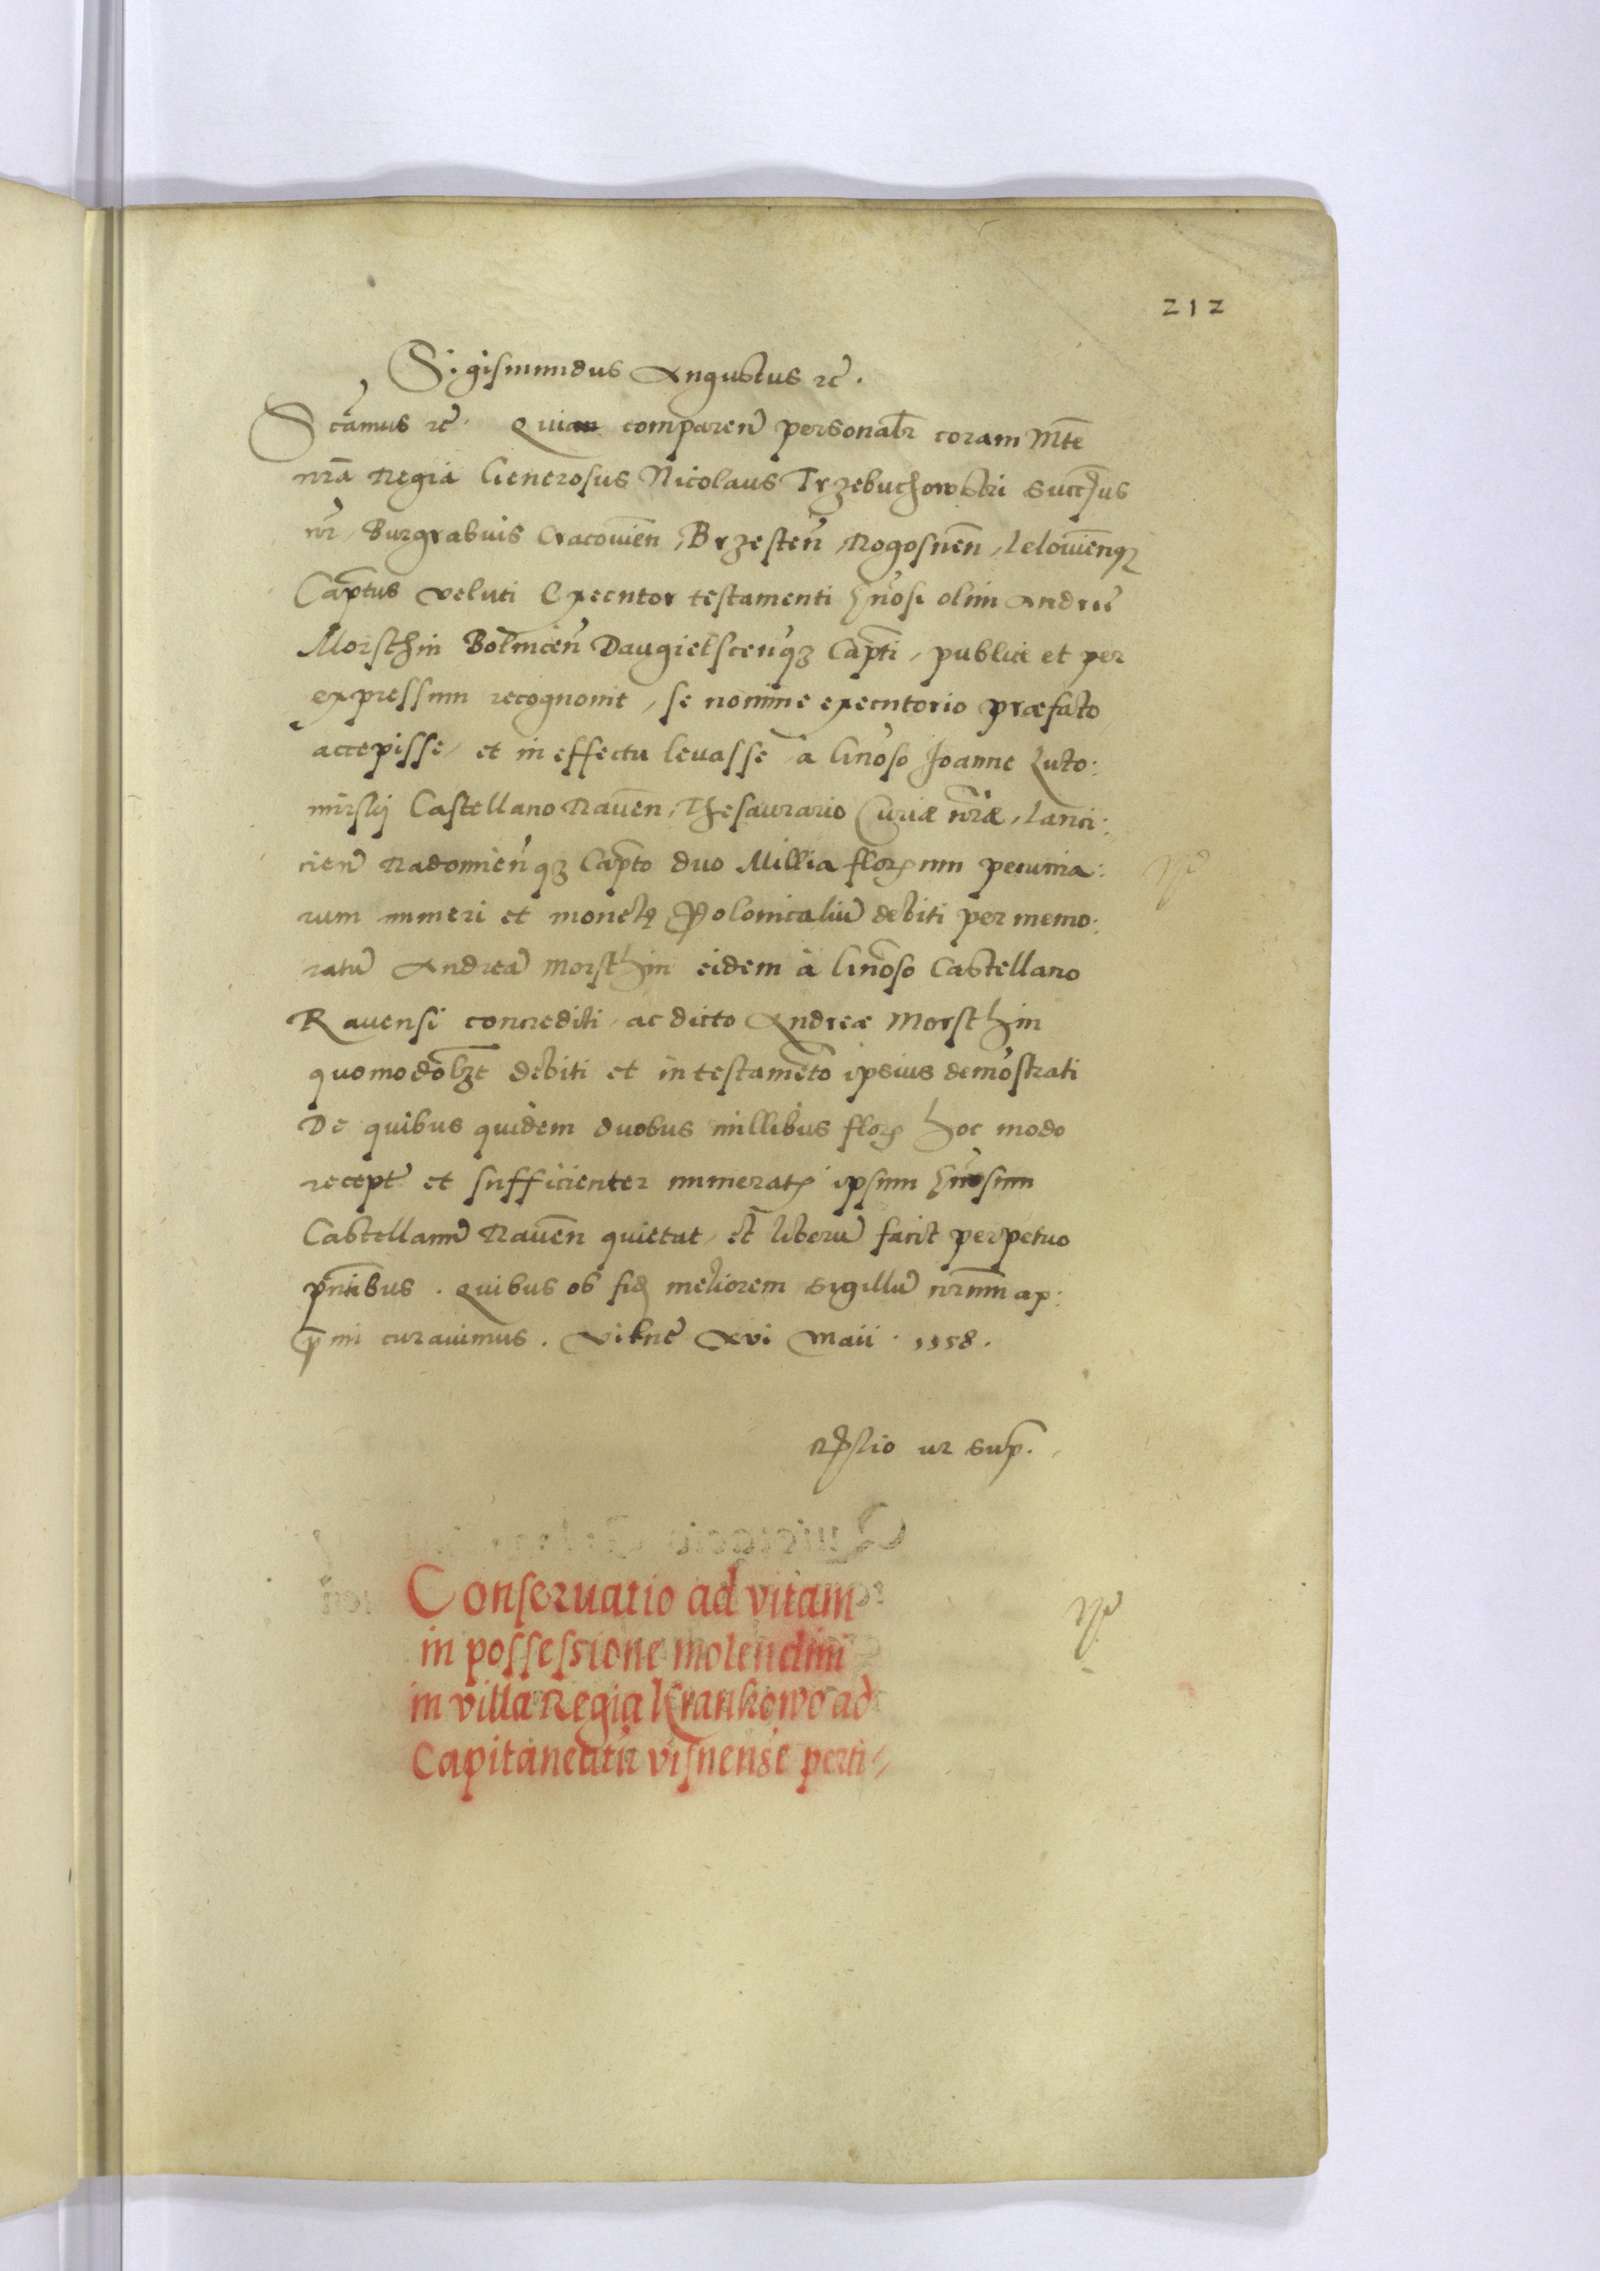 212
Sigismundus Augustus ꝛc̄.
Scamus ꝛc̄. Quia comparen̄ personalr̄ coram Mte
nrā Regia Generosus Nicolaus Trzebuchowski Succ̄us
nr̄, Burgrabius Cracovien̄, Brzesten̄, Rogosnen̄, Lelovien̄qꝫ
Captus veluti Executor testamenti Gn̄osi olim Andree
Morsthin Bolnicen̄ Daugielscen̄qꝫ Capti, publice et per
expressum recognouit, se nomine executorio præfato
accepisse, et in effectu leuasse à Gn̄oso Joanne Luto:
mirskj Castellano Raven̄, Thesaurario Curiæ nr̄æ, Lanci:
cien̄ Radomien̄qꝫ Capto duo Millia florꝝ num pecunia:
rum numeri et monetę Polonicaliū debiti per memo:
ratū Andreā Morsthin eidem à Gn̄oso Castellano
Ravensi concrediti, ac dicto Andreæ Morsthin
quomodolꝫt debiti et in testamēto ipsius demōstrati
De quibus quidem duobus millibus florꝝ hoc modo
recept̄ et sufficienter numeratꝝ ipsum Gn̄osum
Castellanū Raven̄ quietat, et liberū facit perpetuo
pn̄tibus. Quibus ob fidē meliorem Sigillū nr̄um ap:
p̄mi curavimus. Vilnē xvi Maii. 1558.
Rela̅tio ut sup.
Conseruatio ad vitam
in possessione molendini
in villa Regia Krankowo ad
Capitaneatū visnense perti⸗